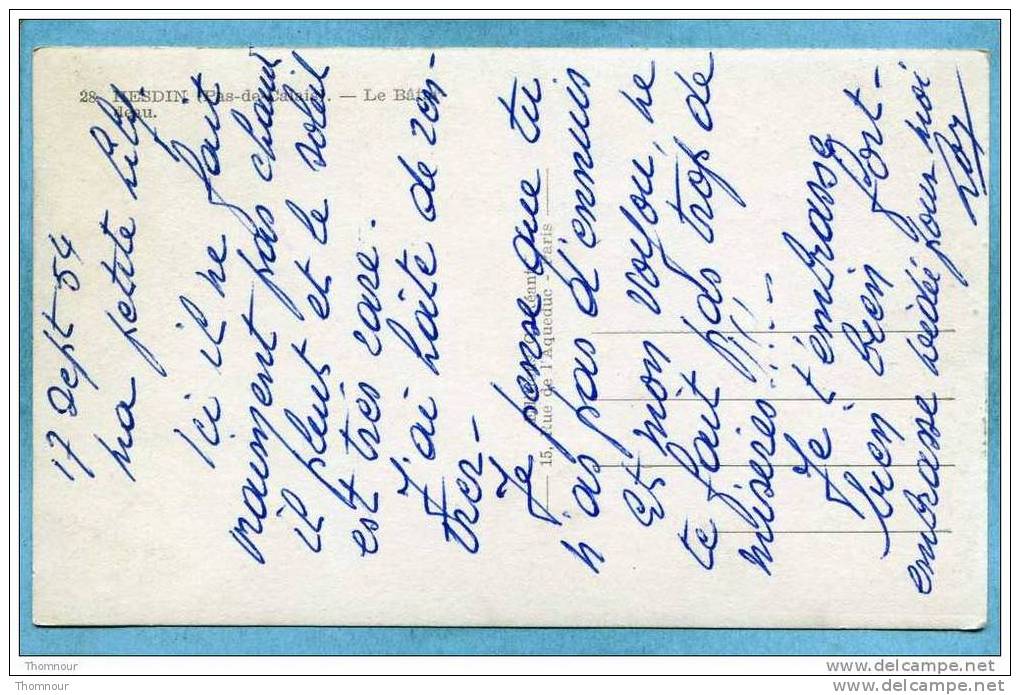 28. HESDIN (Pas-de-Calais). — Le Bâti-
deau.
15, Rue de l'Aqueduc - Paris
17 Sept 54
Ma petite
Ici il ne faut
vraiment pas chaud
il pleut et le soleil
est très rare.
J'ai hâte de ren-
trer —
Je pense que tu
n'as pas d'ennuis
Et mon voyou, ne
te fait pas trop de
misères !!! —
Je t'embrasse
bien bien fort —
embrasse pour moi
Thomnour
Thomnour
www.delcampe.net
www.delcampe.net